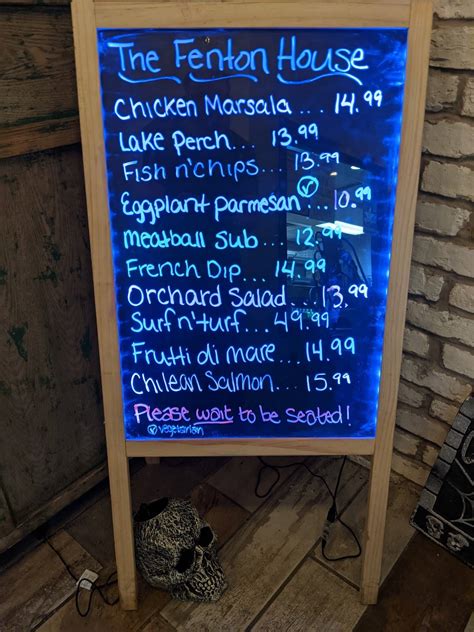 The Fenton House
Chicken Marsala... 14.99
Lake Perch... 13.99
Fish n'chips... 13.99
Eggplant parmesan... 10.99
meatball sub... 12.99
French Dip... 14.99
Orchard Salad... 13.99
Surf n'turf... 49.99
Frutti di mare... 14.99
Chilean Salmon... 15.99
Please wait to be seated!
vegetarian